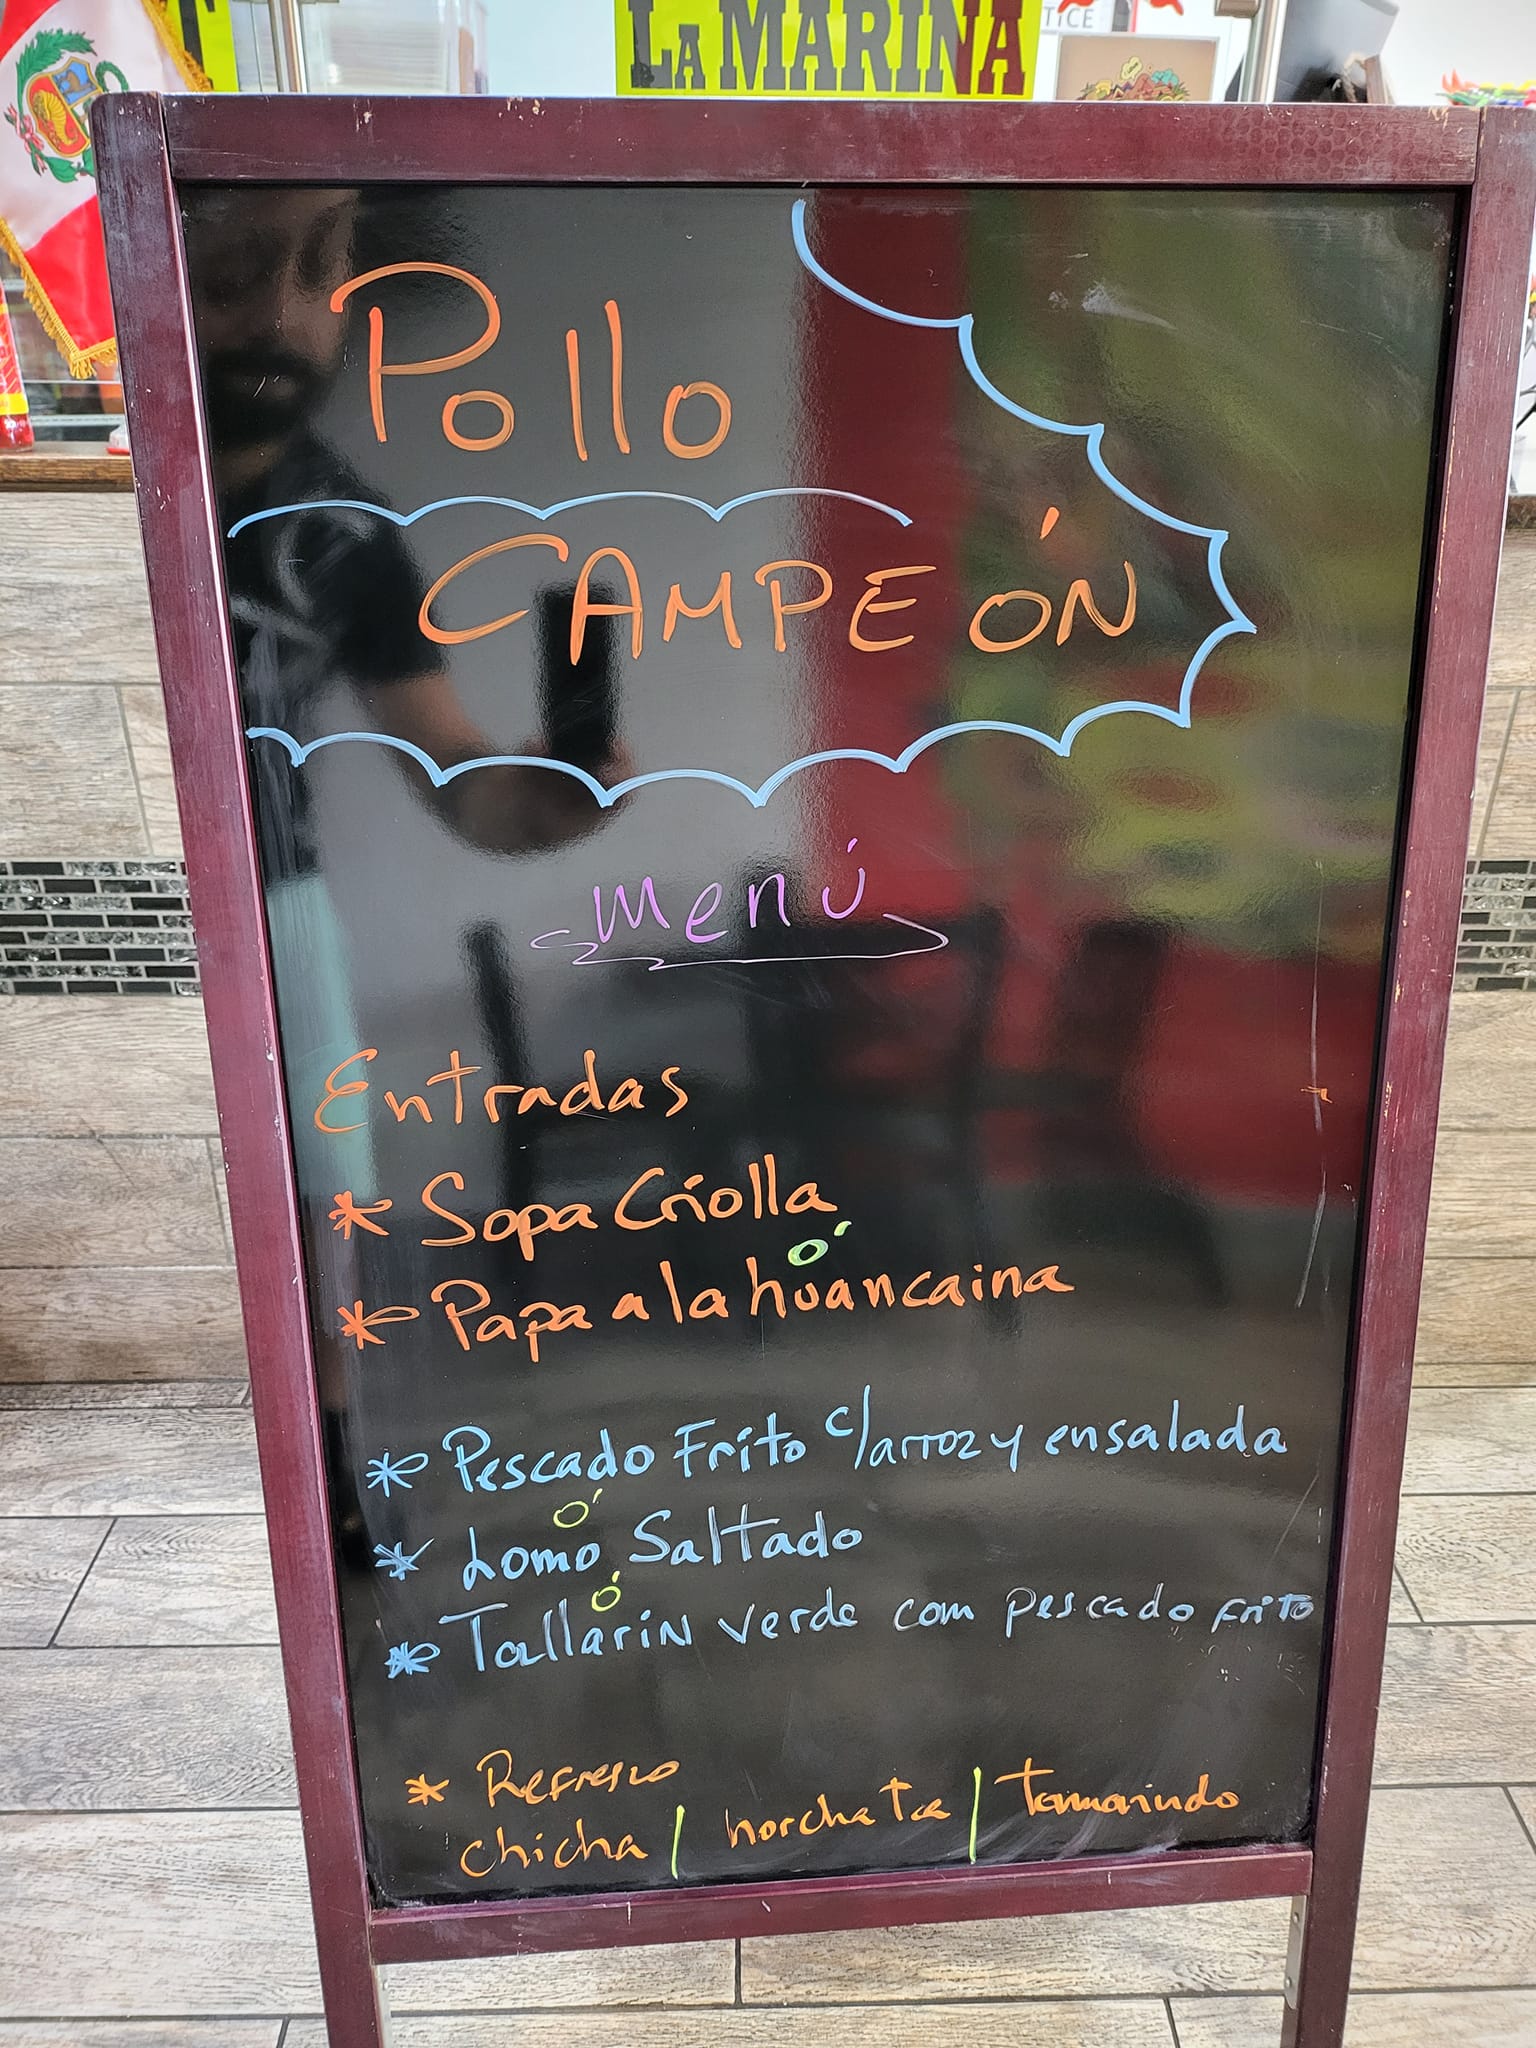 LA MARINA
TICE
Pollo
CAMPEÓN
Menú
Entradas
* Sopa Criolla
ó
* Papa a la huancaina
* Pescado Frito c/arroz y ensalada
ó
* Lomo Saltado
ó
* Tallarin verde com pescado frito
* Refresco
chicha / horchata / tamarindo